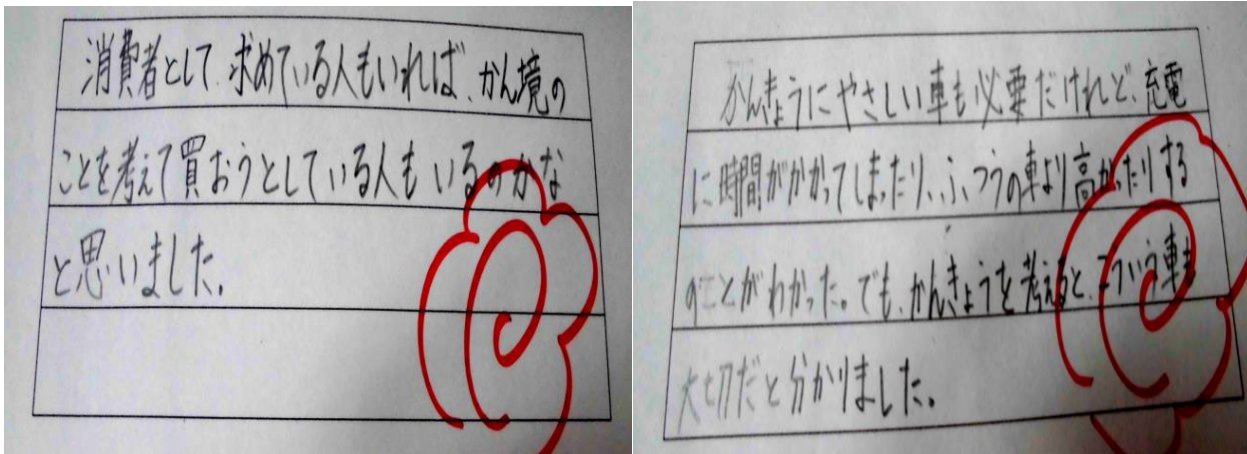 消費者として、求めている人もいれば、かん境の
ことを考えて買おうとしている人もいるのかな
と思いました。
かんきょうにやさしい車も必要だけれど、充電
に時間がかかってしまったり、ふつうの車より高かったりする
のことがわかった。でも、かんきょうを考えると、こういう車も
大切だと分かりました。